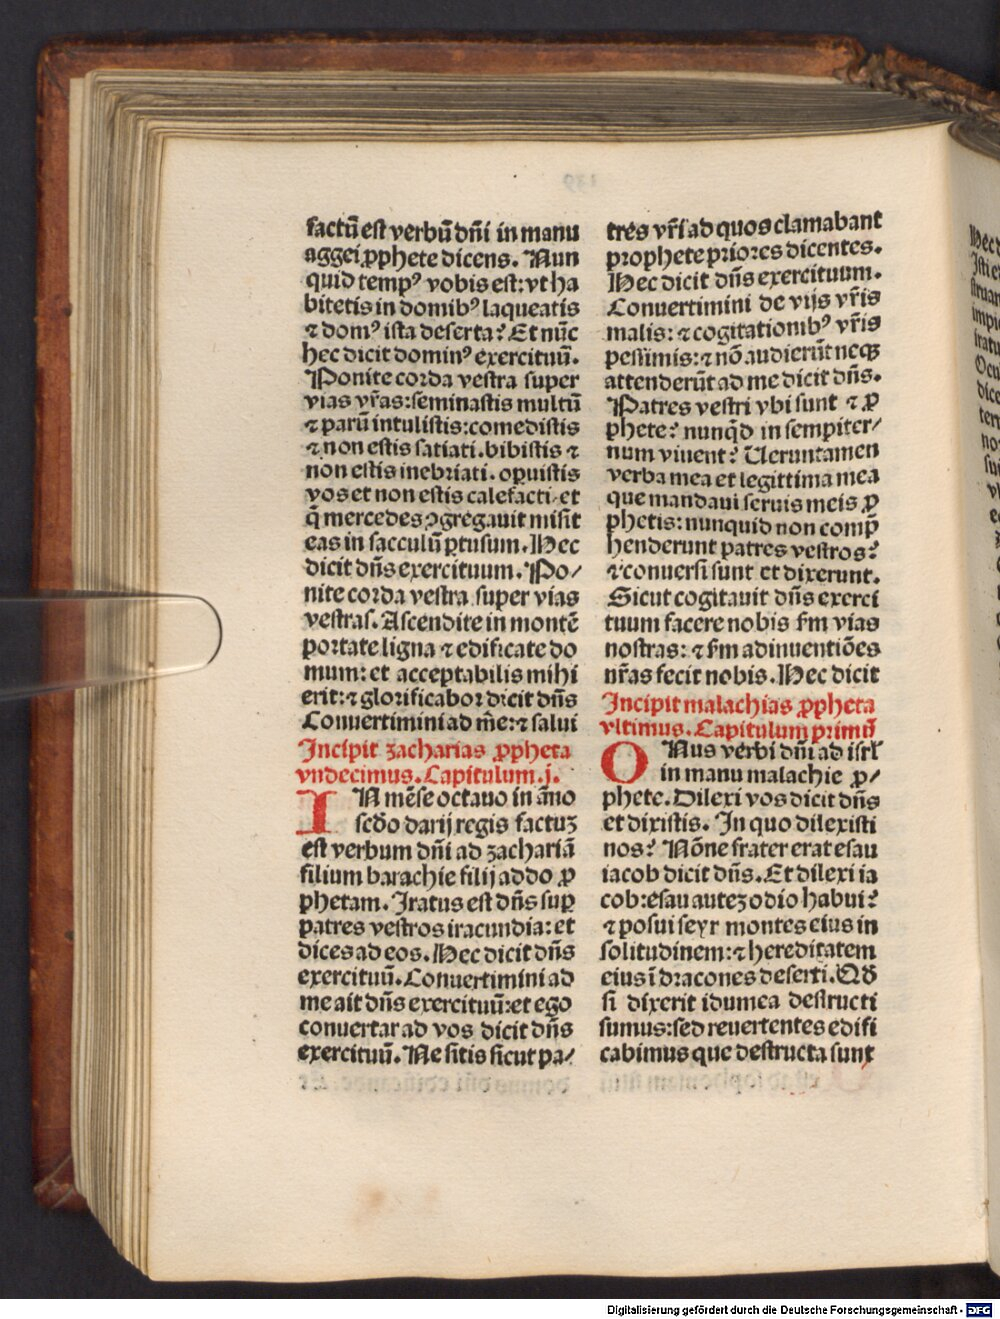 factū est verbū dñi in manu
aggei ꝓphete dicens. Nun
quid tempꝰ vobis est: vt ha
bitetis in domibꝰ laqueatis
⁊ domꝰ ista deserta? Et nūc
hec dicit dominꝰ exercituū.
Ponite corda vestra super
vias vr̃as: seminastis multū
⁊ parū intulistis: comedistis
⁊ non estis satiati. bibistis ⁊
non estis inebriati. oꝑuistis
vos et non estis calefacti. et
q̄ mercedes ꝯgregauit misit
eas in sacculū ꝑtusum. Hec
dicit dñs exercituum. Po/
nite corda vestra super vias
vestras. Ascendite in montē
portate ligna ⁊ edificate do
mum: et acceptabilis mihi
erit: ⁊ glorificabor dicit dñs
Conuertimini ad me: ⁊ salui
Incipit zacharias ꝓpheta
vndecimus. Capitulum .j.
IN mēse octauo in āno
secdo darij regis factuz
est verbum dñi ad zachariā
filium barachie filij addo ꝓ
phetam. Iratus est dñs suꝑ
patres vestros iracundia: et
dices ad eos. Hec dicit dñs
exercituū. Conuertimini ad
me ait dñs exercituū: et ego
conuertar ad vos dicit dñs
exercituū. Ne sitis sicut pa/
tres vr̃i ad quos clamabant
prophete priores dicentes.
Hec dicit dñs exercituum.
Conuertimini de vijs vr̃is
malis: ⁊ cogitationibꝰ vr̃is
pessimis: ⁊ nō audierūt neqꝫ
attenderūt ad me dicit dñs.
Patres vestri vbi sunt ⁊ ꝓ
phete? nunqͥd in sempiter/
num viuent? Ueruntamen
verba mea et legittima mea
que mandaui seruis meis ꝓ
phetis: nunquid non comp̄
henderunt patres vestros?
⁊ conuersi sunt et dixerunt.
Sicut cogitauit dñs exerci
tuum facere nobis fm vias
nostras: ⁊ fm adinuentiões
nr̃as fecit nobis. Hec dicit
Incipit malachias ꝓpheta
vltimus. Capitulum primū
ONus verbi dñi ad isrl̄
in manu malachie ꝓ/
phete. Dilexi vos dicit dñs
et dixistis. In quo dilexisti
nos? Nōne frater erat esau
iacob dicit dñs. Et dilexi ia
cob: esau autez odio habui?
⁊ posui seyr montes eius in
solitudinem: ⁊ hereditatem
eius ī dracones deserti. Qd̄
si dixerit idumea destructi
sumus: sed reuertentes edifi
cabimus que destructa sunt
Digitalisierung gefördert durch die Deutsche Forschungsgemeinschaft - DFG